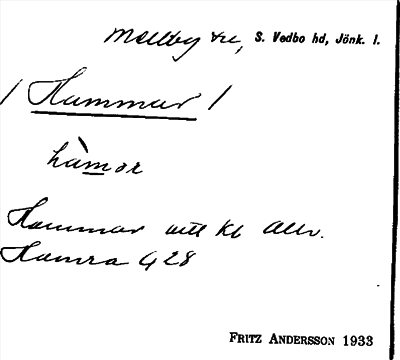 Mellby sn, S. Vedbo hd, Jönk. l.
/ Hammar /
hàmor
Hammar utt Kb Allv.
Hamra G 28
FRITZ ANDERSSON 1933